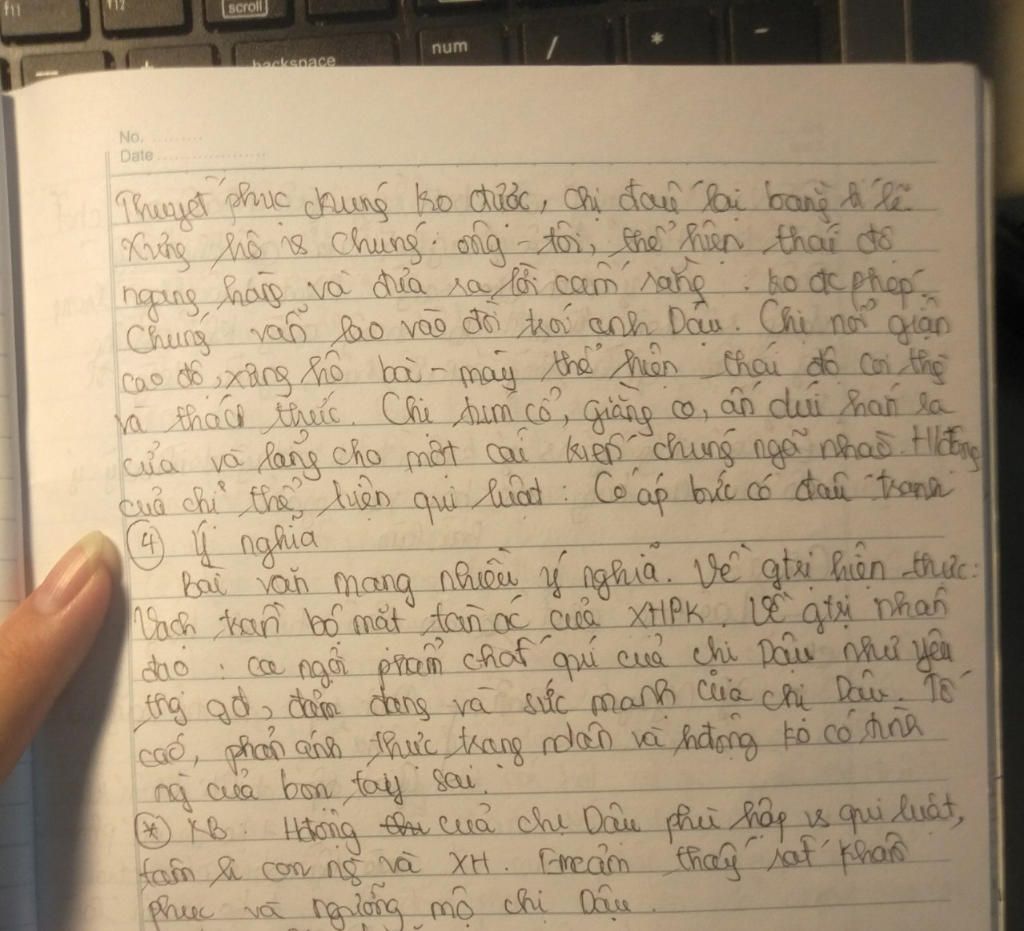 f11
f12
scroll
backspace
num
/
*
-
No. ..........
Date .....................
Thuyết phục chúng ko được, chị đấu lại bằng lí lẽ.
Xưng hô vs chúng: ông - tôi, thể hiện thái độ
ngang hàng và đưa ra lời cảnh rằng: ko đc phép.
Chúng vẫn lao vào đòi trói anh Dậu. Chị nổi giận
cao độ, xưng hô bà - mày thể hiện thái độ coi thg
và thách thức. Chị túm cổ, giằng co, ấn dúi hắn ra
cửa và lẳng cho một cái khiến chúng ngã nhào. Hđộng
của chị thể hiện qui luật: Có áp bức có đấu tranh
④ Ý nghĩa
Bài văn mang nhiều ý nghĩa. Về gtrị hiện thực:
Vạch trần bộ mặt tàn ác của XHPK. Về gtrị nhân
đạo: ca ngợi phẩm chất quí của chị Dậu như yêu
thg gđ, đảm đang và sức mạnh của chị Dậu. Tố
cáo, phản ánh thực trạng ndân và hđộng ko có tình
ng của bọn tay sai.
(*) KB: Hđộng của chị Dậu phù hợp vs qui luật,
tâm lí con ng và XH. Em cảm thấy rất khâm
phục và ngưỡng mộ chị Dậu.